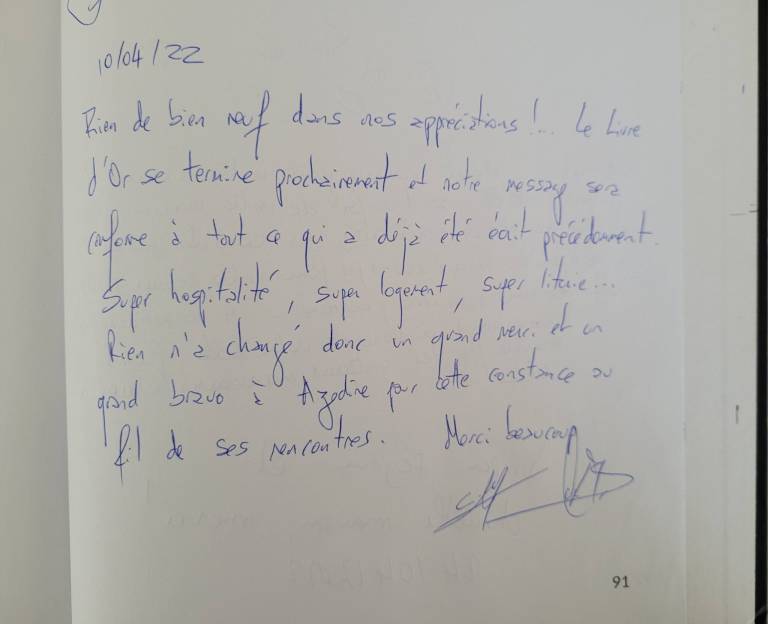 10/04/22
Rien de bien neuf dans nos appréciations !... Le Livre
d'Or se termine prochainement et notre message sera
conforme à tout ce qui a déjà été écrit précédemment.
Super hospitalité, super logement, super literie...
Rien n'a changé donc un grand merci et un
grand bravo à Azedine pour cette constance au
fil de ses rencontres. Merci beaucoup
91